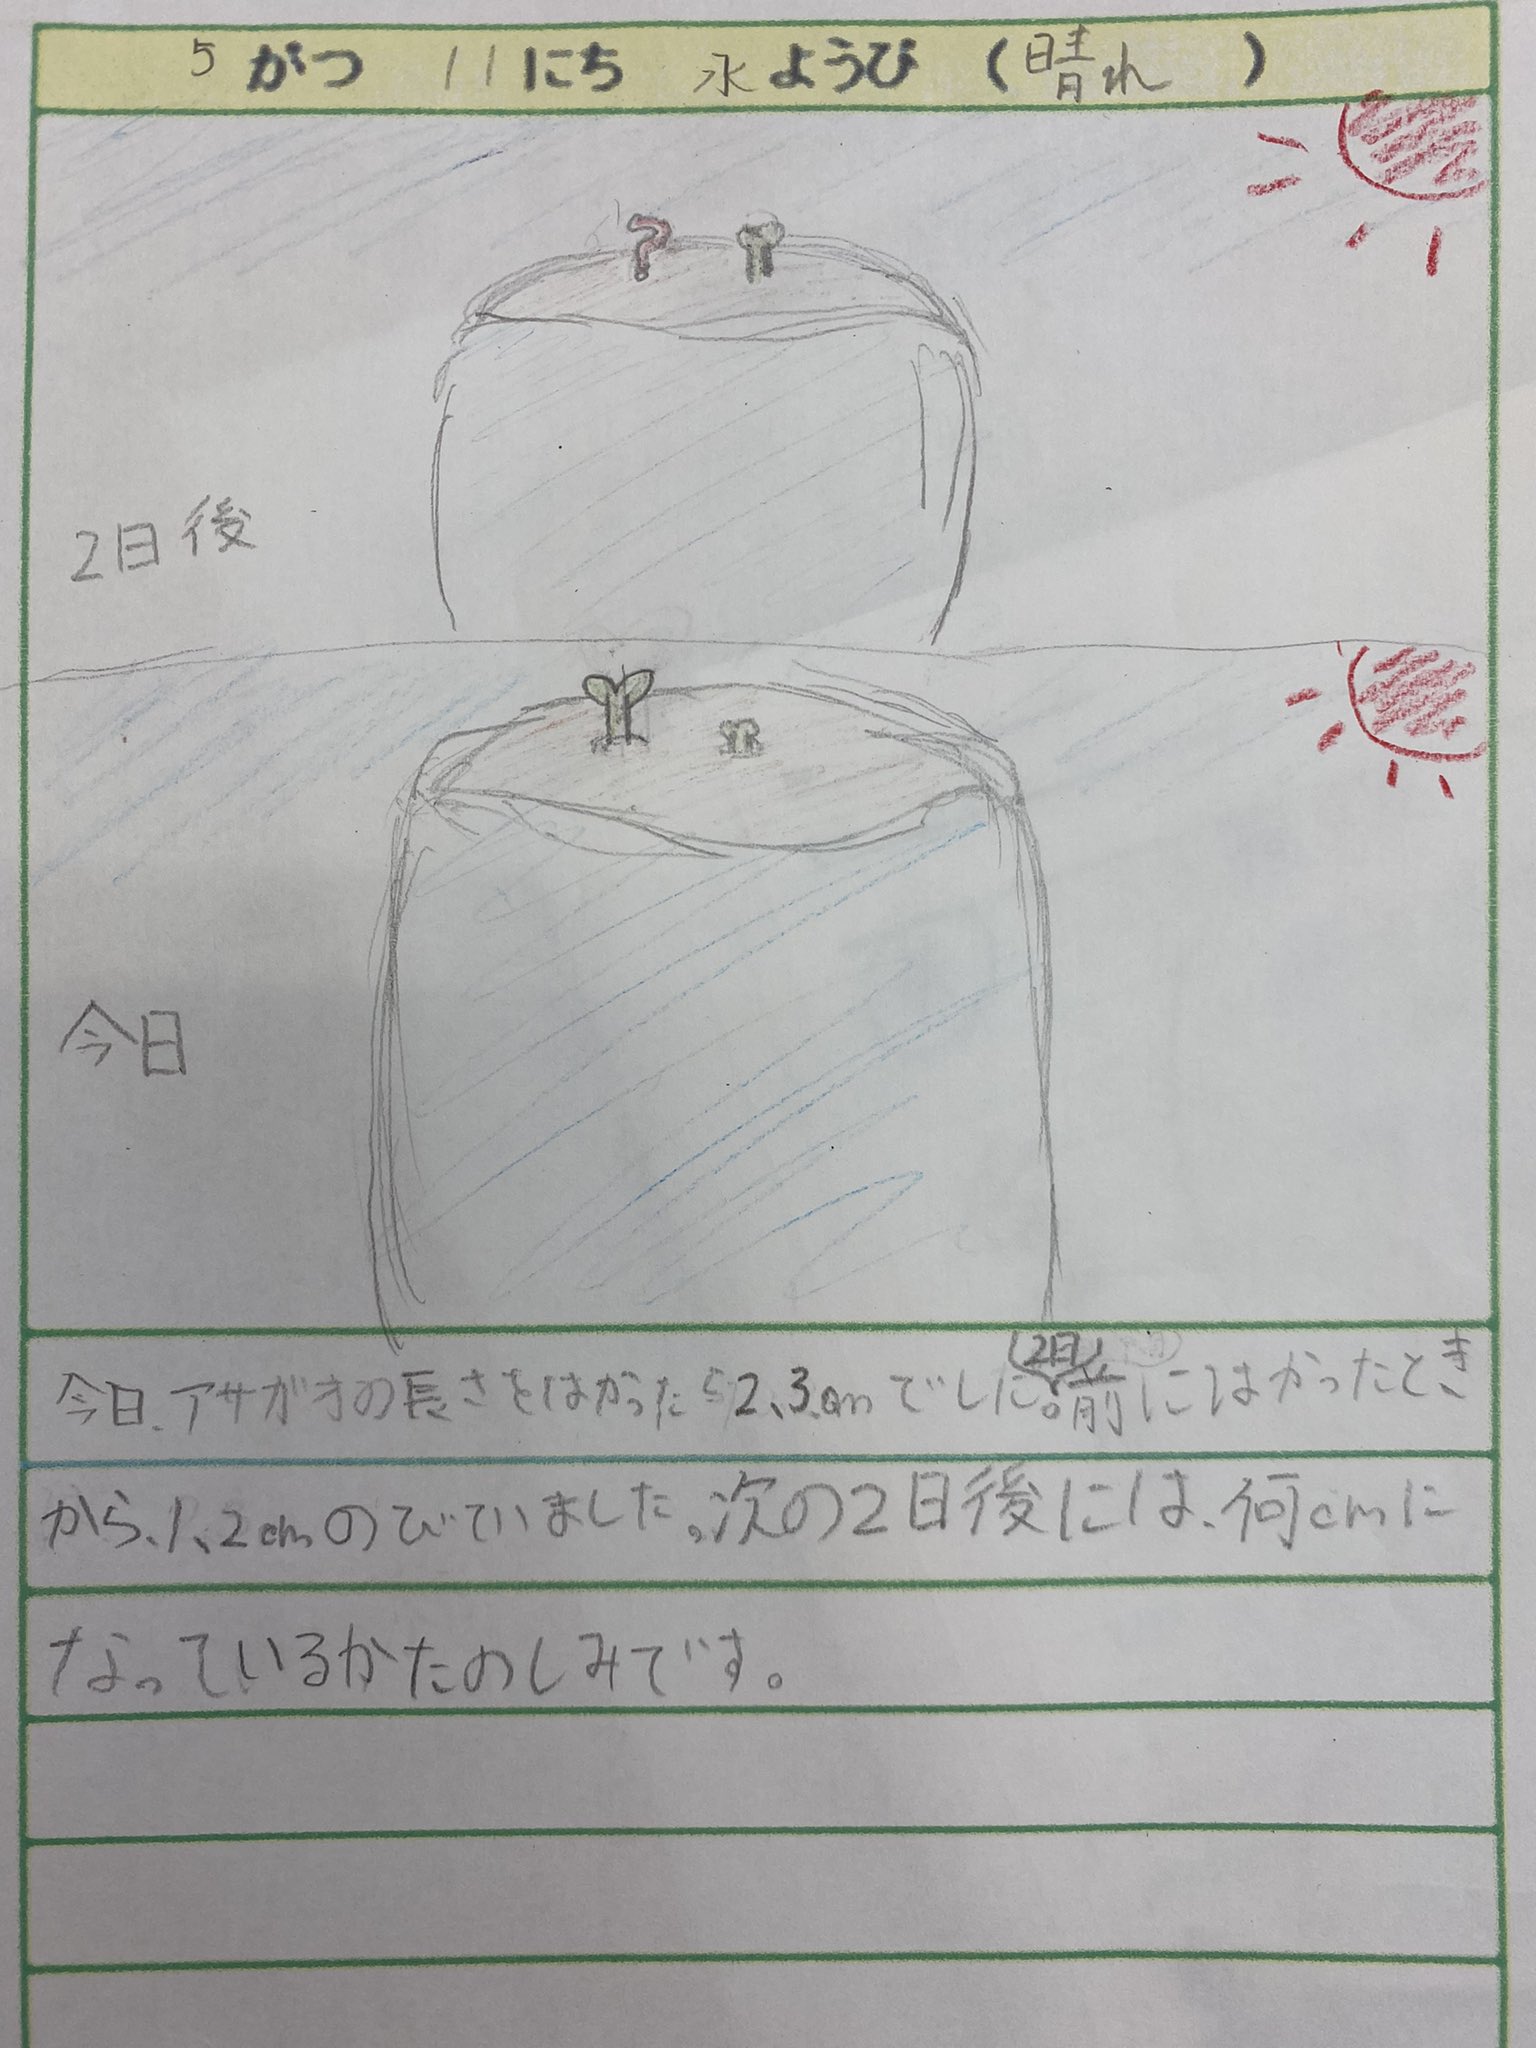 5 がつ 11 にち 水 ようび (晴れ )
2日後
今日
(2日)
今日、アサガオの長さをはかったら2.3cmでした。前にはかったとき
から、1、2cmのびていました。次の2日後には、何cmに
なっているかたのしみです。